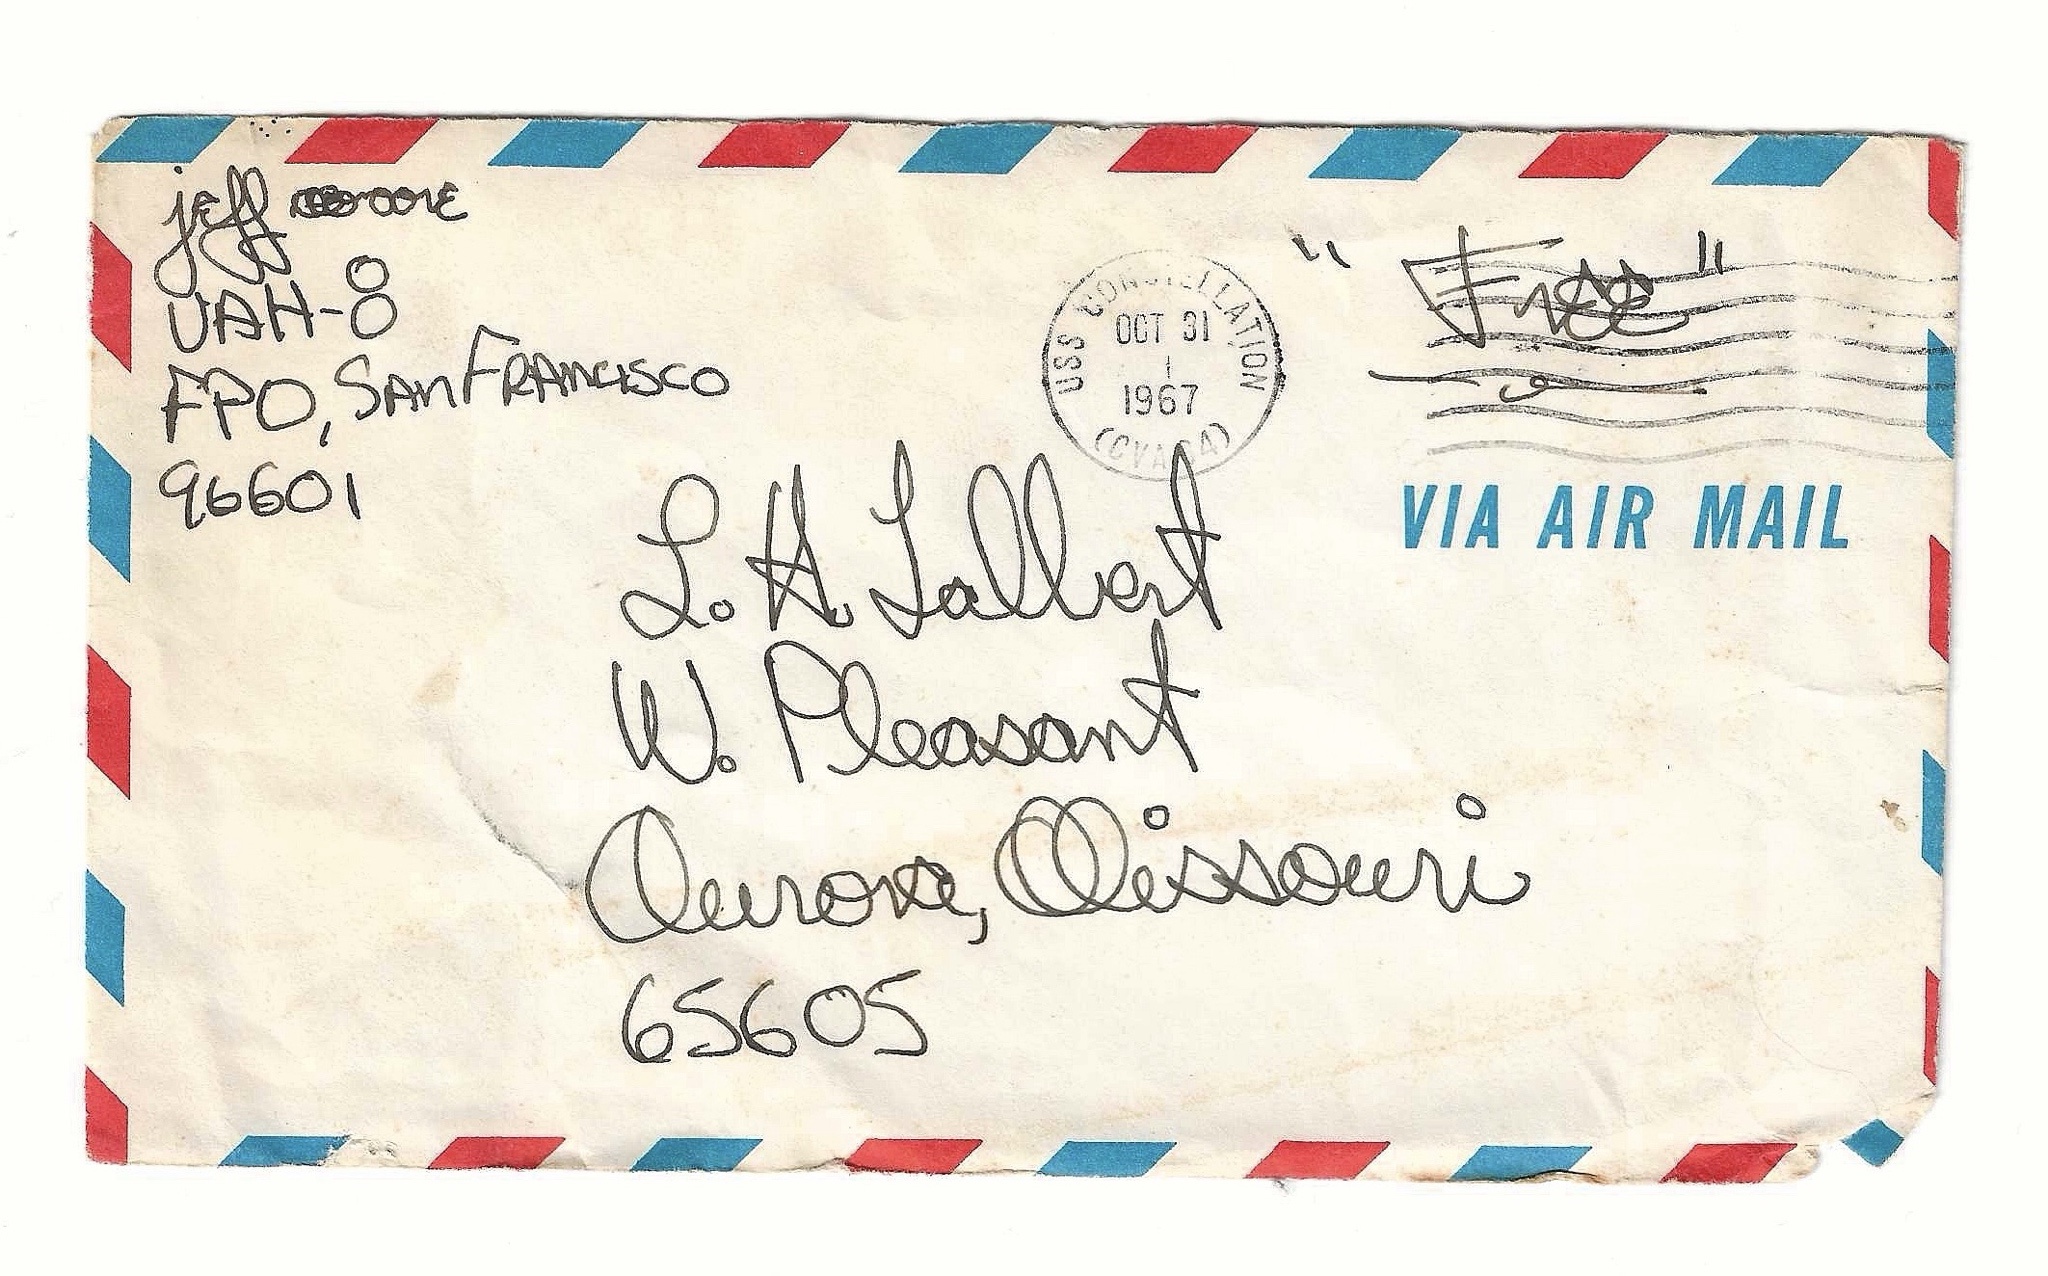 jeff moore
VAH-8
FPO, San Francisco
96601
USS CONSTELLATION
OCT 31
1967
(CVA 64)
" Free "
VIA AIR MAIL
L. H.
W. Pleasant
Aurora, Missouri
65605